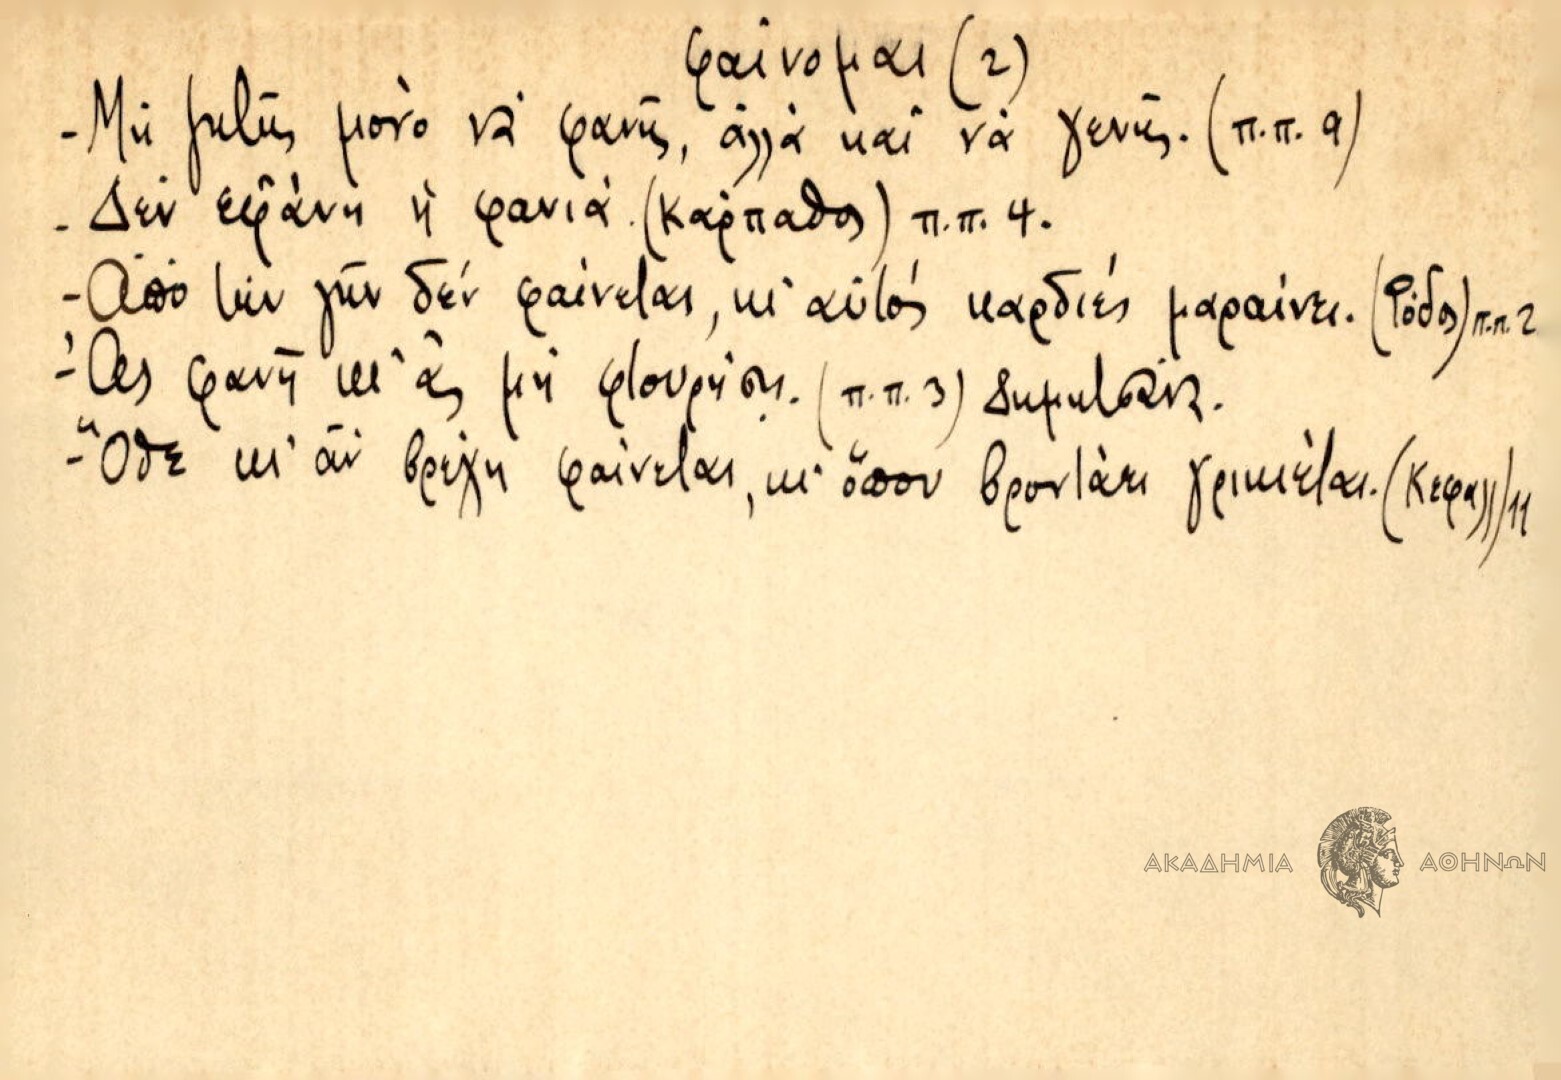 φαίνομαι (2)
- Μή ζητῆς μονὸ νὰ φανῆς, ἀλλὰ καὶ νὰ γενῆς. (π.π. 9)
- Δέν ἐφάνη ἡ φανιά. (Κάρπαθος) π.π. 4.
- Ἀπὸ τὴν γῆν δέν φαίνεται, κι' αὐτός καρδιές μαραίνει. (Ρόδος) π.π. 2
- Ἂς φανῆ κι' ἂς μή φτουρήση. (π.π. 3) Δημητσάν.
- Ὅθε κι' ἂν βρέχη φαίνεται, κι' ὅπου βροντάει γρικιέται. (Κεφαλλ) 11
ΑΚΑΔΗΜΙΑ ΑΘΗΝΩΝ